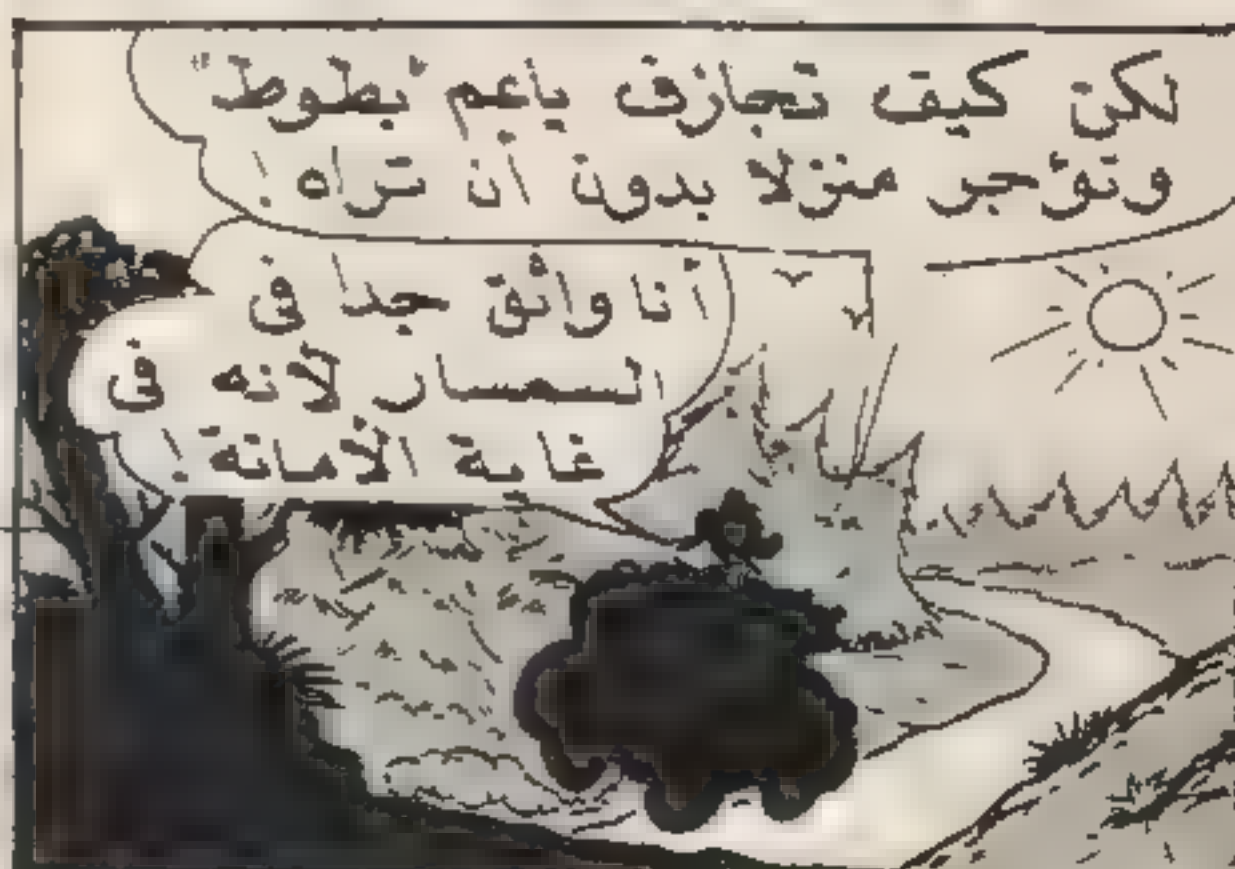 لكن كيف تجازف ياعم "بطوط"
وتؤجر منزلا بدون أن تراه !
أنا واثق جدا فى
السمسار لأنه فى
غاية الأمانة !